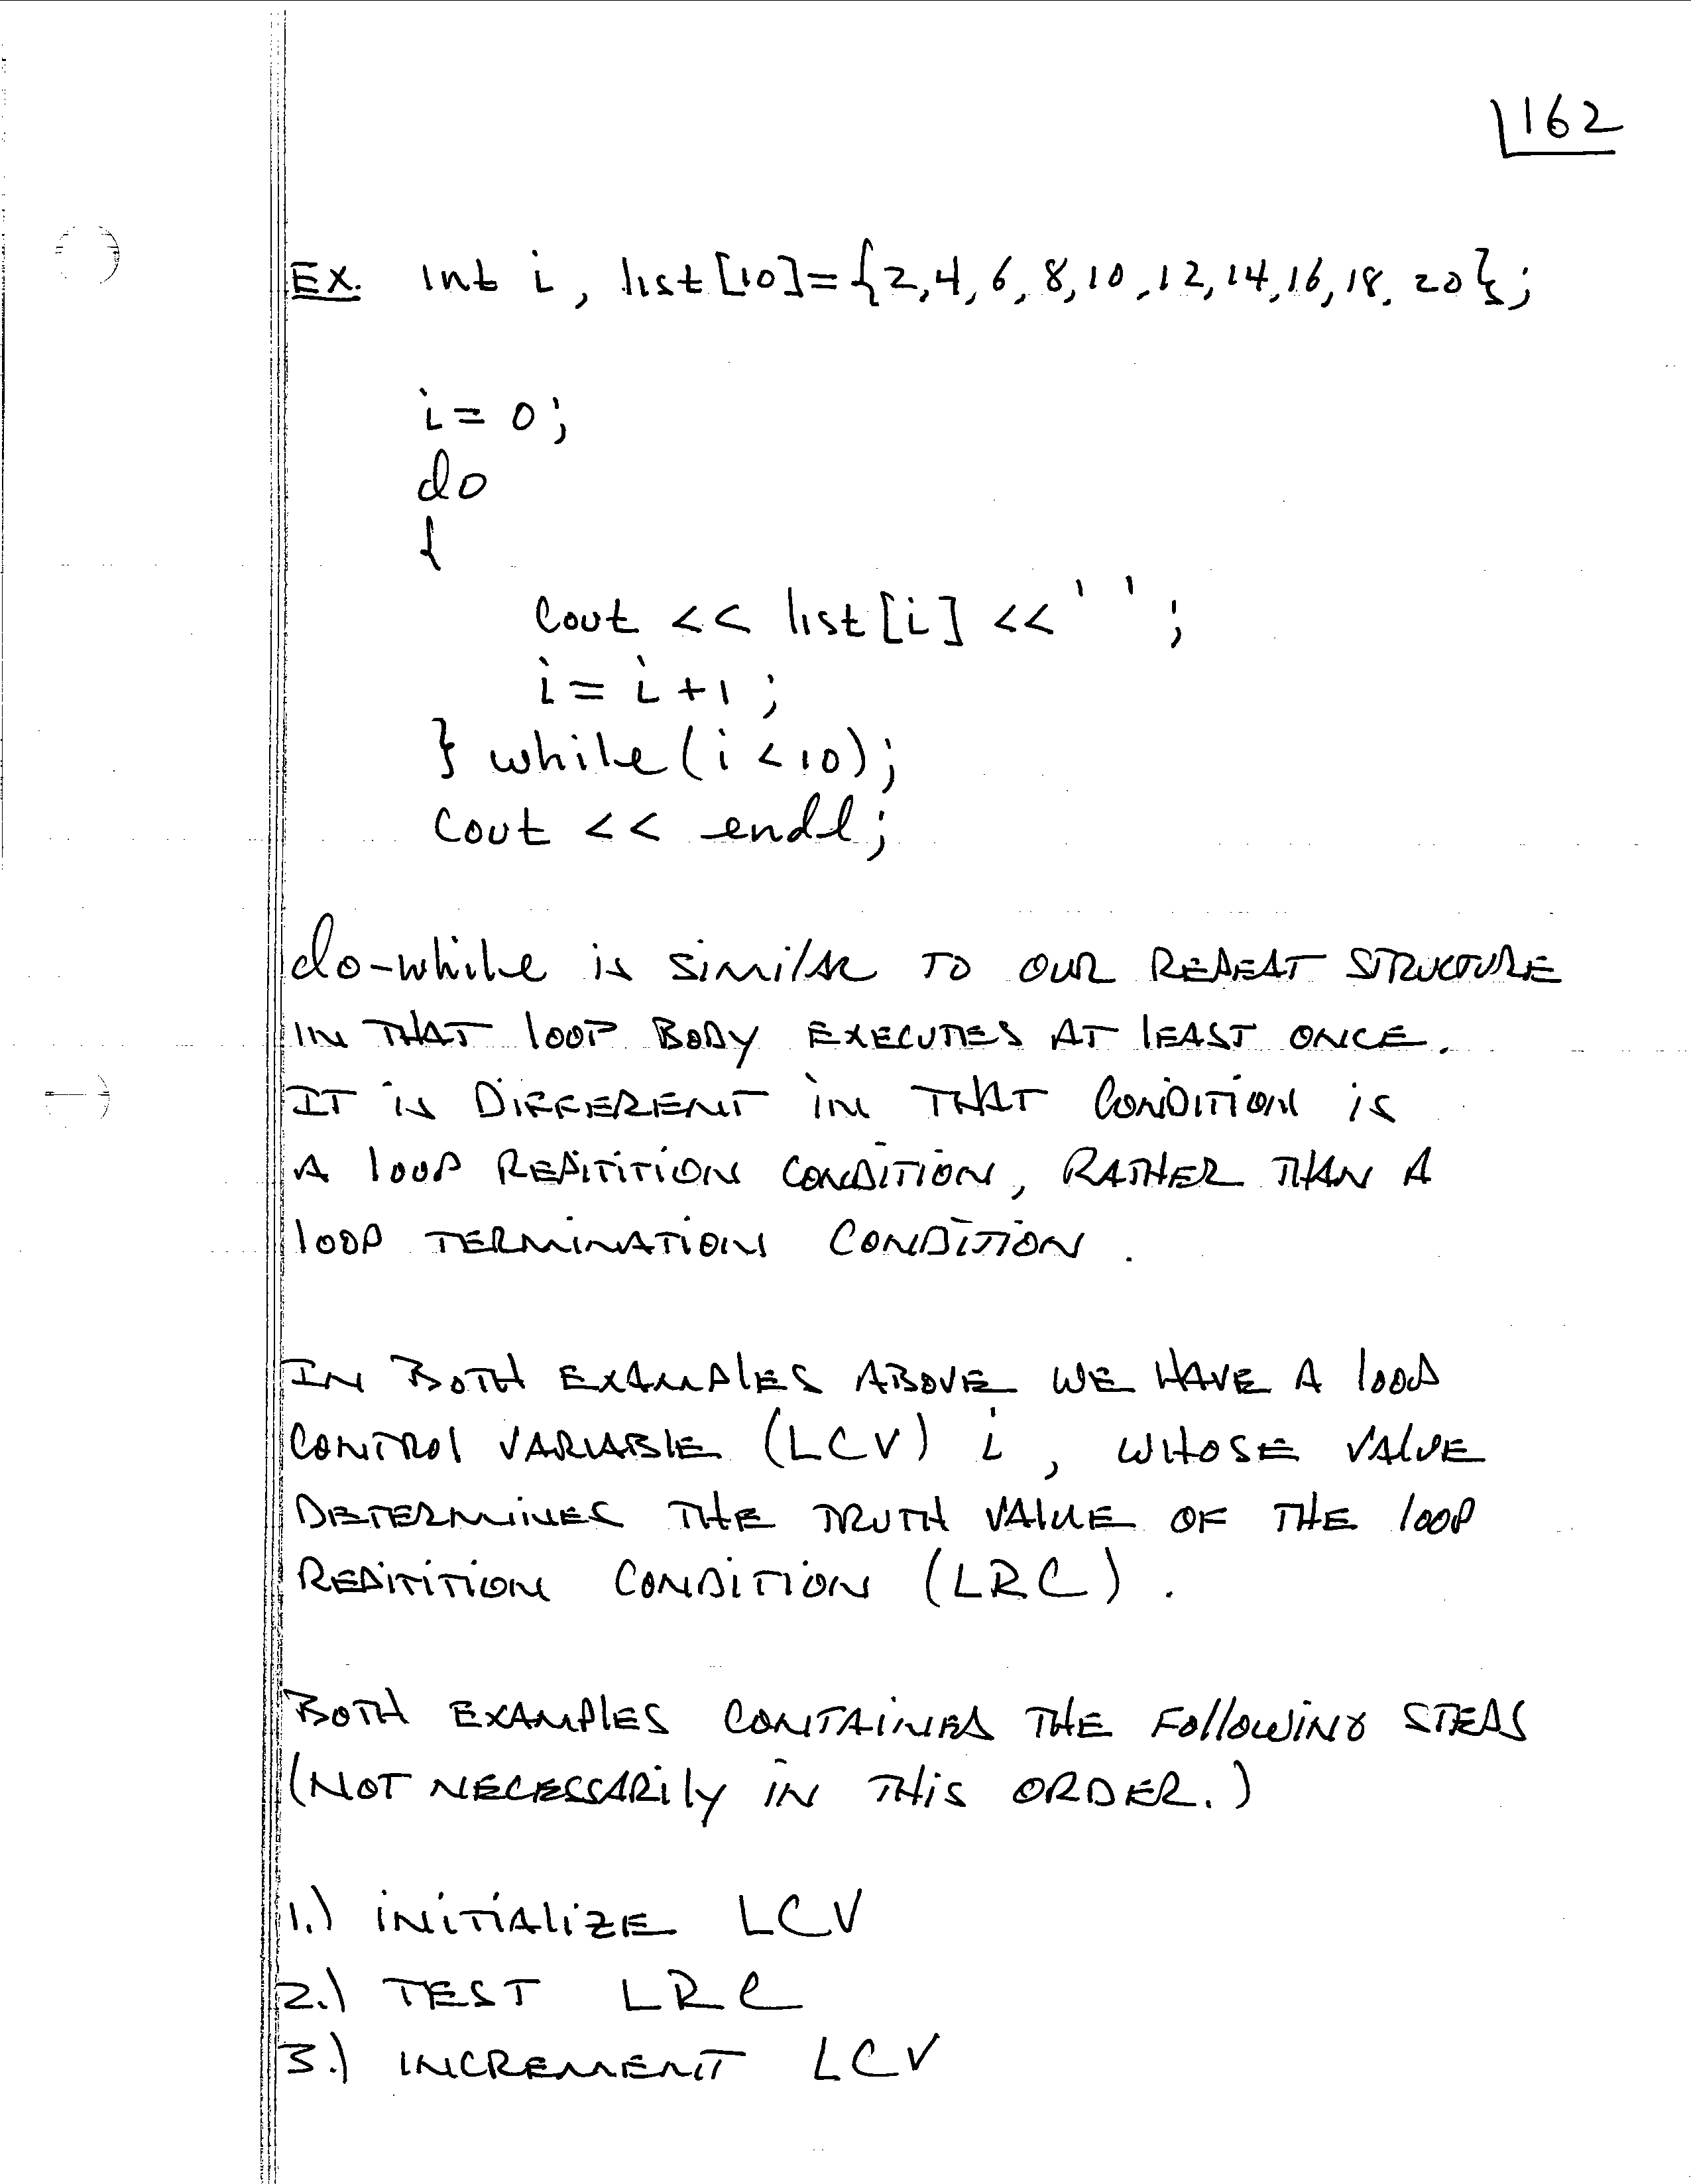 162
Ex. int i, list[10]={2,4,6,8,10,12,14,16,18,20};
i=0;
do
{
cout << list[i] <<' ';
i=i+1;
} while(i<10);
cout << endl;
do-while is similar to our REPEAT STRUCTURE
IN THAT loop BODY EXECUTES AT lEAST ONCE.
IT is DIFFERENT in THAT CONDITION is
A loop REPITITION CONDITION, RATHER THAN A
loop TERMINATION CONDITION.
IN BOTH EXAMPlES ABOVE WE HAVE A loop
CONTROl VARIABlE (LCV) i, WHOSE VAlUE
DETERMINES THE TRUTH VAlUE OF THE loop
REPITITION CONDITION (LRC).
BOTH EXAMPlES CONTAINED THE FOllOWING STEPS
(NOT NECESSARily IN THis ORDER.)
1.) INITIAlIZE LCV
2.) TEST LRC
3.) INCREMENT LCV